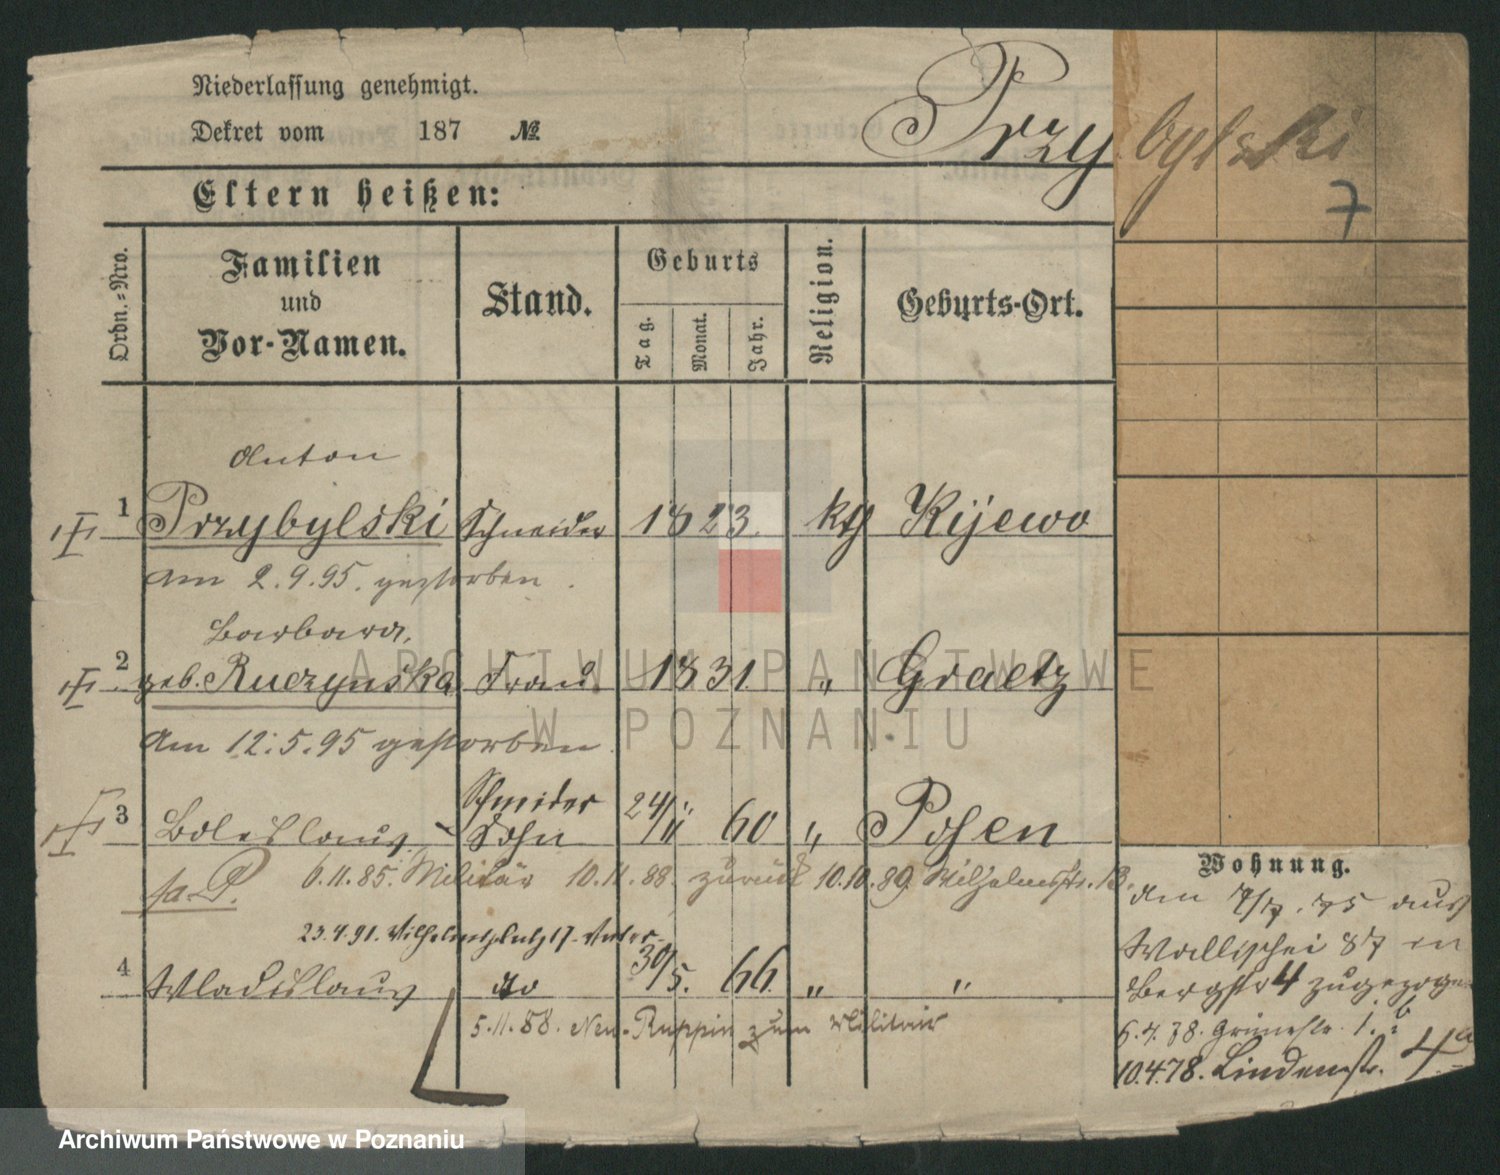 Niederlassung genehmigt.
Dekret vom 187 №
Przybylski
7
Eltern heißen:
Ordn.-Nro.
Familien
und
Vor-Namen.
Stand.
Geburts
Tag.
Monat.
Jahr.
Religion.
Geburts-Ort.
Anton
1 Przybylski Schneider 1823. kth Kijewo
am 2.9.95. gestorben.
Barbara,
2 geb. Ruczynska Frau 1831. " Graetz
Am 12.5.95 gestorben.
Schneider
3 Boleslaus Sohn 24/11 60 " Posen
6.11.85. Militär 10.11.88. zurück 10.10.89. Wilhelmstr. 13.
s. P.
23.4.91. Wilhelmsplatz 17.
4 Wladislaus do 30/5. 66. " "
5.11.88. Neu-Ruppin zum Militair
Wohnung.
am 7/7. 75 aus
Wallischei 87 in
Bergstr 4 zugezogen
6.4.78. Grünestr. 1.b
10.4.78. Lindenstr. 4a
ARCHIWUM PAŃSTWOWE
W POZNANIU
Archiwum Państwowe w Poznaniu